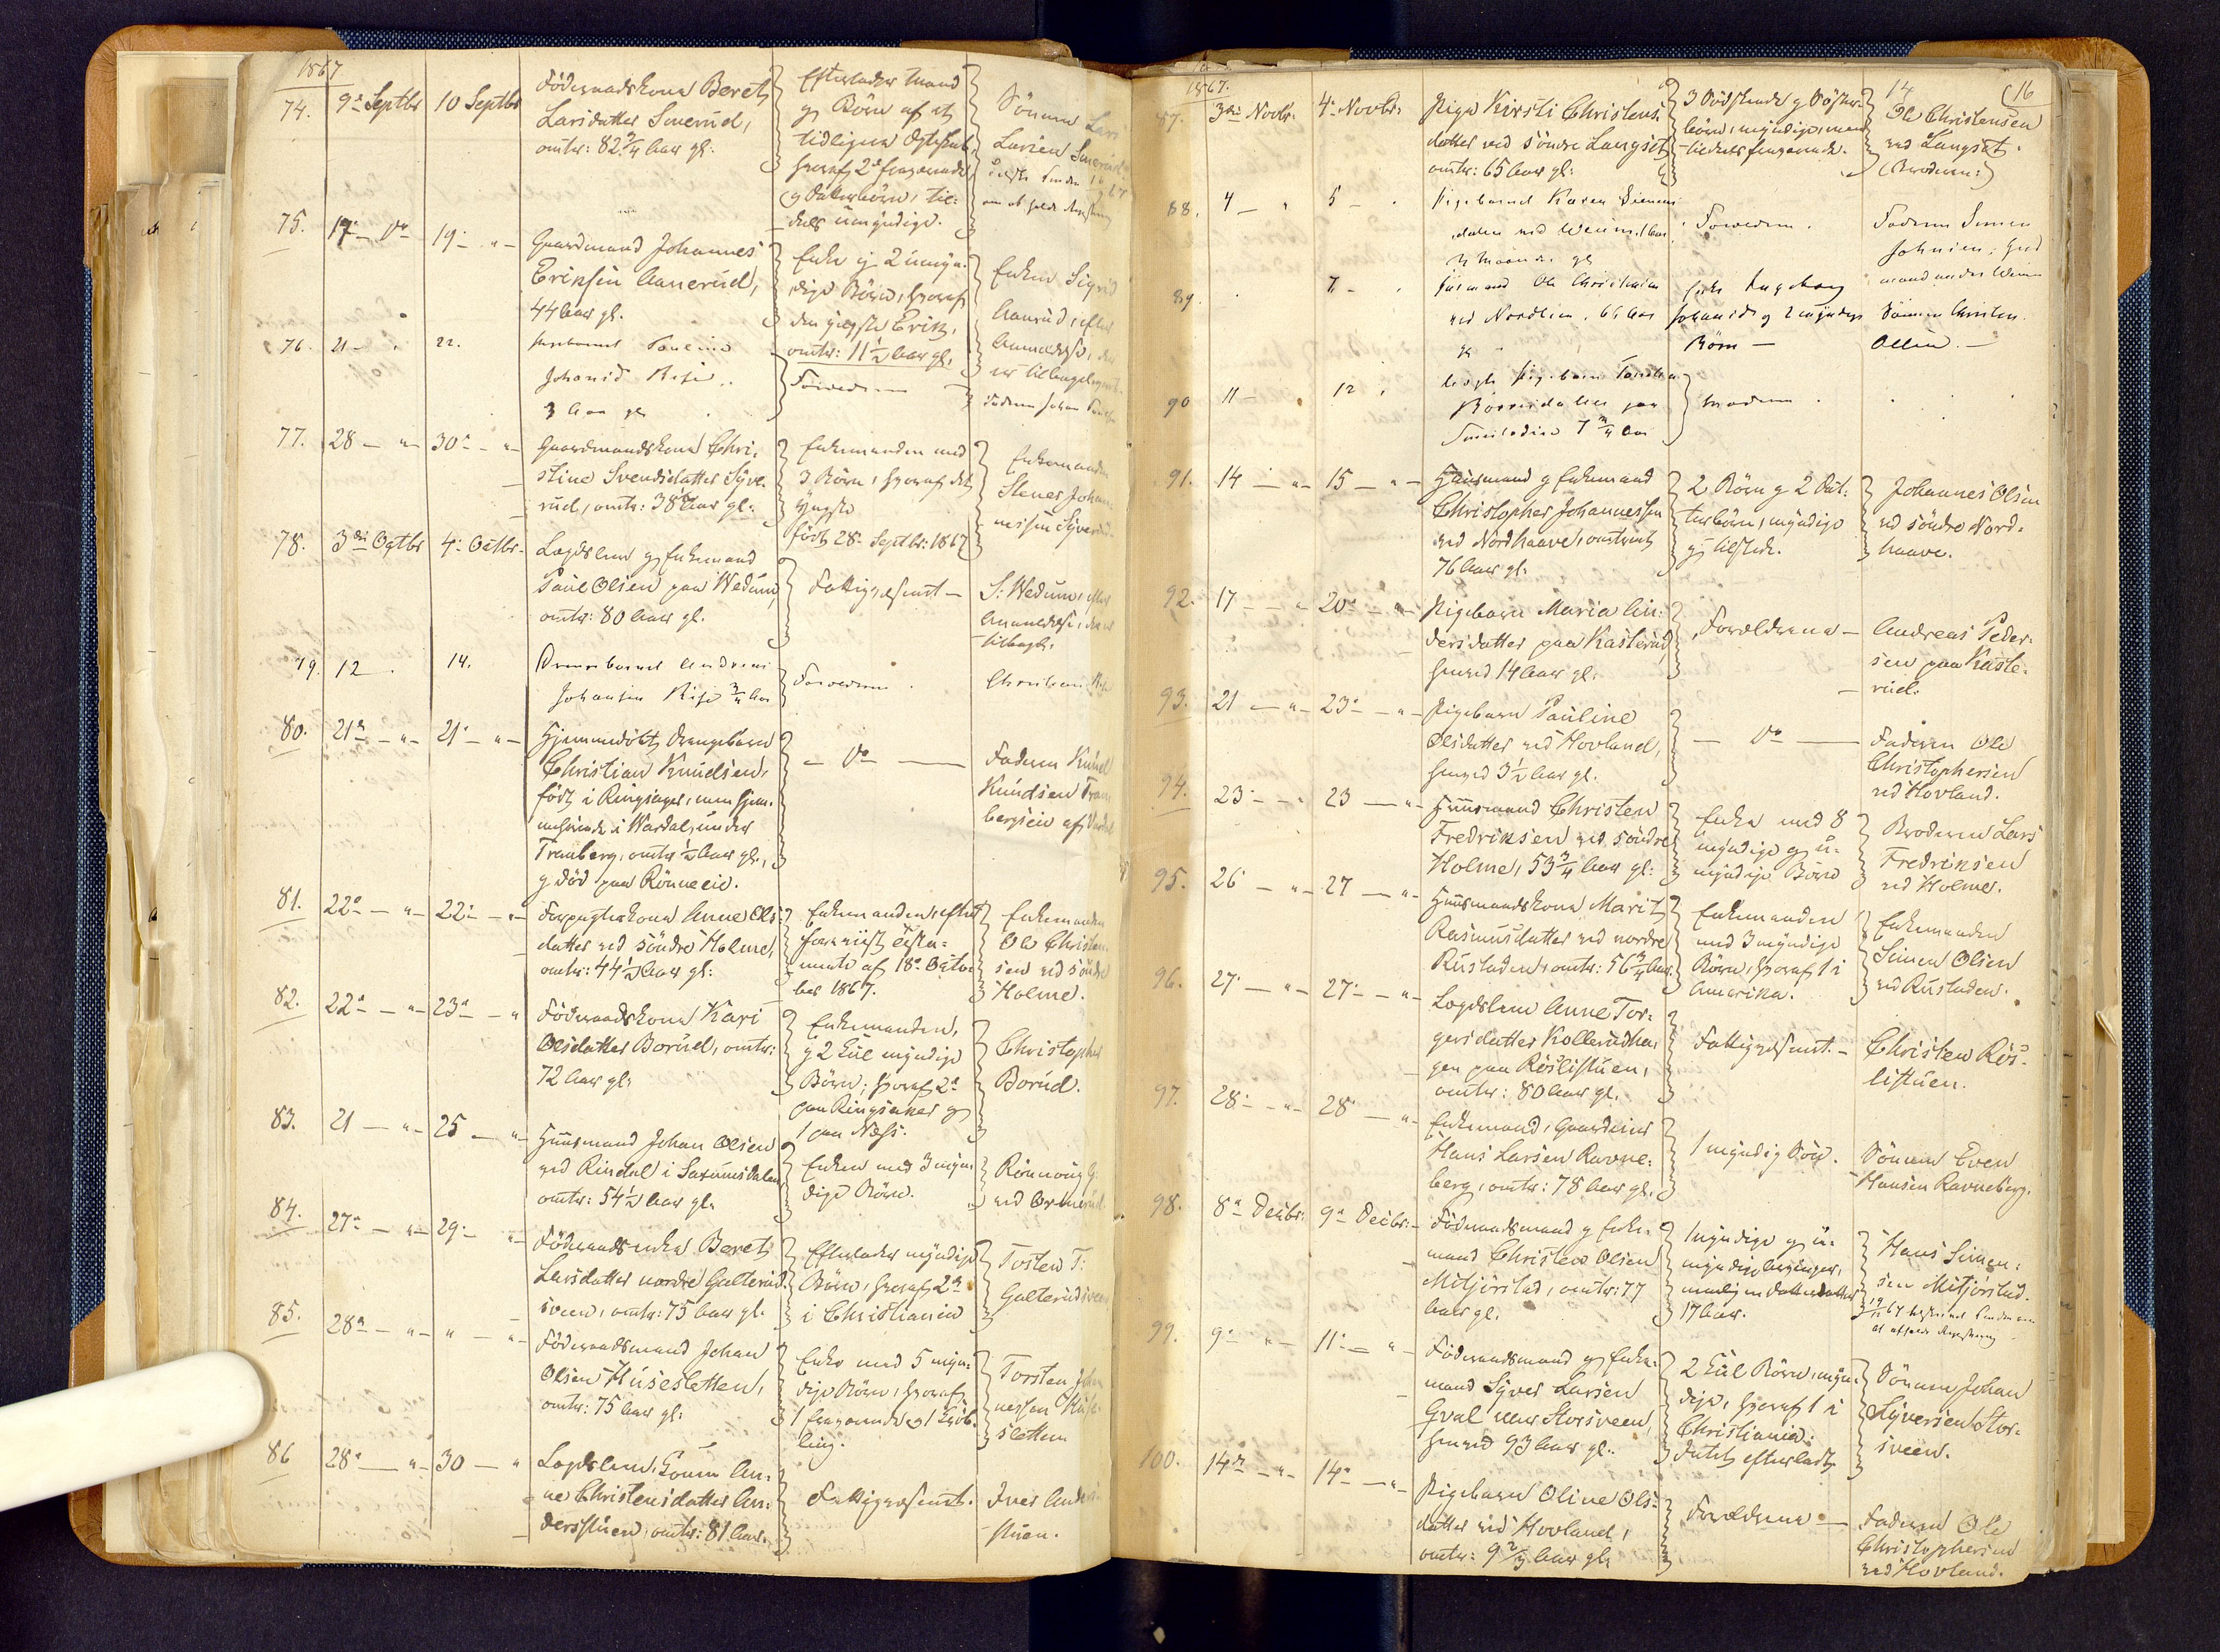 1867
74. 9de Septbr 10 Septbr Föderaadskone Beret
Larsdatter Smerud,
omtr: 82 3/4 Aar gl:
Efterlader Mand
og Börn af et
tidligere Ægteskab,
hvoraf 2de fraværende
og Datterbörn, til-
dels umyndige.
Sönnen Lars
Larsen Smerud
75. 17 - Do 19 - " - Gaardmand Johannes
Eriksen Aanerud,
44 Aar gl.
Enke og 2 umyn-
dige Börn, hvoraf
den yngste Erik,
omtr: 11 1/2 Aar gl.
Enken Sigrid
Aanrud, efter
Anmeldelse, der
er tilbagelagt.
76. 21 - " 22. Pigebarnet Pauline
Johansd
3 Aar gl
Forældrene
Faderen Johan
77. 28 - " - 30 - " - Gaardmandskone Chri-
stine Svendsdatter Syve-
rud, omtr: 38 Aar gl:
Enkemanden med
3 Börn, hvoraf det
yngste
födt 28. Septbr: 1867
Enkemanden
Stener Johan-
nessen Syverud.
78. 3die Octbr 4. Octbr. Lægdslem og Enkemand
Paul Olsen paa Wedum,
omtr: 80 Aar gl.
Fattigvæsenet -
S: Wedum, efter
Anmeldelse, der er
tilbagel.
79. 12 - . 14. Drengebarnet Andreas
Johansen 3/4 Aar
Forældrene .
Christian
80. 21de - " - 21 - " - Hjemmedöbt Drengebarn
Christian Knudsen,
födt i Ringsager, men hjem-
mehörende i Wardal, under
Tranberg, omtr 1/2 Aar gl.,
og död paa Rönneeie.
- Do -
Faderen Knud
Knudsen Tran-
bergseie af Vardal
81. 22de - " - 22 - " - Forpagterkone Anne Ols-
datter ved söndre Holme,
omtr: 44 1/2 Aar gl:
Enkemanden, efter
foreviist Testa-
mente af 18. Octo-
ber 1867.
Enkemanden
Ole Christen-
sen ved söndre
Holme.
82. 22de - " - 23de - " Föderaadskone Kari
Olsdatter Borud, omtr:
72 Aar gl:
Enkemanden,
og 2 Kuld myndige
Börn; hvoraf 2de
paa Ringsaker og
1 paa Næss.
Christopher
Borud.
83. 21 - " - 25 - " - Huusmand Johan Olsen
ved Rindal i Saxumsdalen
omtr: 54 1/2 Aar gl.
Enken med 3 myn-
dige Börn.
Rönnoug
ved Ormerud
84. 27de - " - 29 - " - Föderaadsenke Beret
Larsdatter nordre Galterud-
sveen, omtr: 75 Aar gl.
Efterlader myndige
Börn, hvoraf 2de
i Christiania
Tosten T:
Galterudsveen
85. 28de - " - " - " - Föderaadsmand Johan
Olsen Husesletten,
omtr: 75 Aar gl:
Enke med 5 myn-
dige Börn, hvoraf
1 fraværende og 1 Tvil-
ling.
Torsten Johan-
nessen Huse-
sletten
86 28de - " - 30 - " Lægdslem, Konen An-
ne Christensdatter An-
dersstuen, omtr: 81 Aar.
Fattigvæsenet.
Iver Anders-
stuen.
1867.
14 (16
87. 3die Novbr: 4. Novbr: Pige Kirsti Christens-
datter ved söndre Langset
omtr: 65 Aar gl:
3 Södskende og Söster-
börn, myndige, men
tildels fraværende.
Ole Christensen
ved Langset.
(Broderen:)
88. 4 - " 5 - . Pigebarnet Karen Simens
datter ved
Maaneder gl
Forældrene .
Faderen Simen
Johnsen,
89. . 7 - . Huusmand Ole Christensen
ved Nordlien . 66 Aar
gl -
Enke Ingeborg
Johansd og 2 myndige
Börn -
Sönnen Christen
Olsen. -
90 11 - . 12 .
Moderen .
91. 14 - " - 15 - " - Huusmand og Enkemand
Christopher Johannessen
ved Nordhaave, omtrent
76 Aar gl.
2 Börn og 2 Dat-
terbörn, myndige
og tilstede.
Johannes Olsen
ved söndre Nord-
haave.
92. 17 - " 20de - " - Pigebarn Maria An-
dersdatter paa Kasterud,
henved 14 Aar gl:
Forældrene -
Andreas Peder-
sen paa Kaste-
rud.
93. 21 - " - 23de - " - Pigebarn Pauline
Olsdatter ved Hovland,
henved 3 1/2 Aar gl.
- Do -
Faderen Ole
Christophersen
ved Hovland.
94. 23de - " 23 - " - Huusmand Christen
Fredriksen ved söndre
Holme, 53 3/4 Aar gl:
Enke med 8
myndige og u-
myndige Börn
Broderen Lars
Fredriksen
ved Holme.
95. 26 - " - 27 - " - Huusmandskone Marit
Rasmusdatter ved nordre
Rustaden, omtr: 56 3/4 Aar.
Enkemanden
med 3 myndige
Börn, hvoraf 1 i
Amerika.
Enkemanden
Simen Olsen
ved Rustaden.
96. 27 - " - 27 - " - Lægdslem Anne Tor-
gersdatter Kollerudha-
gen paa Röslistuen,
omtr: 80 Aar gl.
Fattigvæsenet. -
Christen Rös-
listuen.
97. 28 - " - 28 - " - Enkemand, Gaardeier
Hans Larsen Ravne-
berg, omtr: 78 Aar gl.
1 myndig Sön.
Sönnen Even
Hansen Ravneberg.
98. 8de Decbr: 9de Decbr: Föderaadsmand og Enke-
mand Christen Olsen
Mitjörstad, omtr: 77
Aar gl.
1 myndige og u-
myndige Arvinger,
nemlig en Datterdatter
17 Aar.
Hans Simen-
sen Mitjorstad.
99. 9de " - 11 - " - Föderaadsmand og Enke-
mand Syver Larsen
Hval ... Storsveen,
henved 93 Aar gl.
2 Kuld Börn, myn-
dige, hvoraf 1 i
Christiania.
Intet efterladt
Sönnen Johan
Syversen Stor-
sveen.
100. 14de - " - 14de - " - Pigebarn Oline Ols-
datter ved Hovland,
omtr: 9 2/3 Aar gl.
Forældrene -
Faderen Ole
Christophersen
ved Hovland.